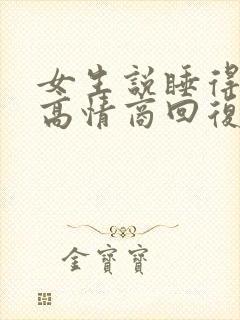 女生説睡得
高情商回復
金寶寶